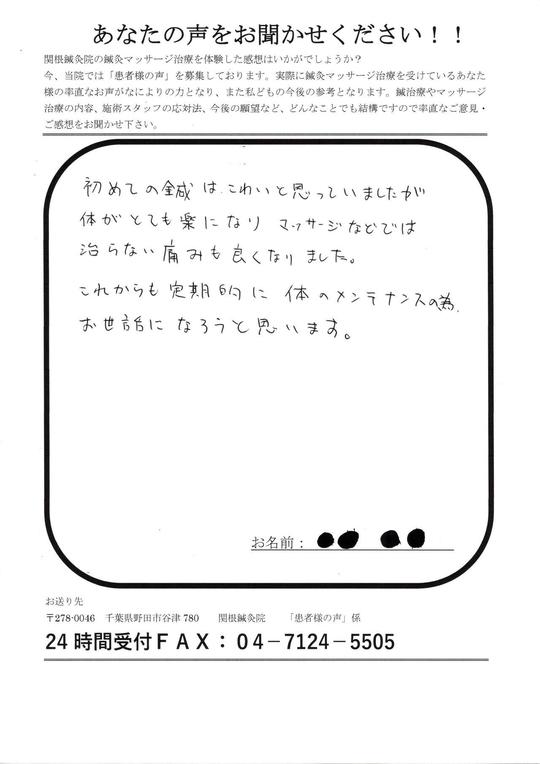 あなたの声をお聞かせください！！
関根鍼灸院の鍼灸マッサージ治療を体験した感想はいかがでしょうか？
今、当院では「患者様の声」を募集しております。実際に鍼灸マッサージ治療を受けているあなた
様の率直なお声がなによりの力となり、また私どもの今後の参考となります。鍼治療やマッサージ
治療の内容、施術スタッフの応対法、今後の願望など、どんなことでも結構ですので率直なご意見・
ご感想をお聞かせ下さい。
初めての鍼は こわいと思っていましたが
体がとても楽になり マッサージなどでは
治らない痛みも良くなりました。
これからも定期的に 体のメンテナンスの為、
お世話になろうと思います。
お名前：
お送り先
〒278-0046 千葉県野田市谷津 780 関根鍼灸院 「患者様の声」係
24 時間受付ＦＡＸ：０４－7124－5505